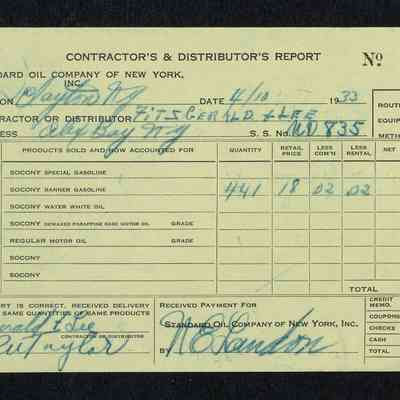 CONTRACTOR'S & DISTRIBUTOR'S REPORT No
DARD OIL COMPANY OF NEW YORK,
INC.
ON Clayton NY DATE 4/10 1933
ROUTE
TRACTOR OR DISTRIBUTOR FITSGERALD & LEE
EQUIP
ESS Alex Bay N.Y S. S. No. ND 835
METH
PRODUCTS SOLD AND NOW ACCOUNTED FOR QUANTITY RETAIL PRICE LESS COM'N LESS RENTAL NET
SOCONY SPECIAL GASOLINE
SOCONY BANNER GASOLINE 441 18 02 02
SOCONY WATER WHITE OIL
SOCONY DEWAXED PARAFFINE BASE MOTOR OIL GRADE
REGULAR MOTOR OIL GRADE
SOCONY
SOCONY
TOTAL
RT IS CORRECT, RECEIVED DELIVERY
SAME QUANTITIES OF SAME PRODUCTS
erald & Lee
CONTRACTOR OR DISTRIBUTOR
Taylor
RECEIVED PAYMENT FOR
STANDARD OIL COMPANY OF NEW YORK, INC.
BY N E Landon
CREDIT MEMO.
COUPONS
CHECKS
CASH
TOTAL